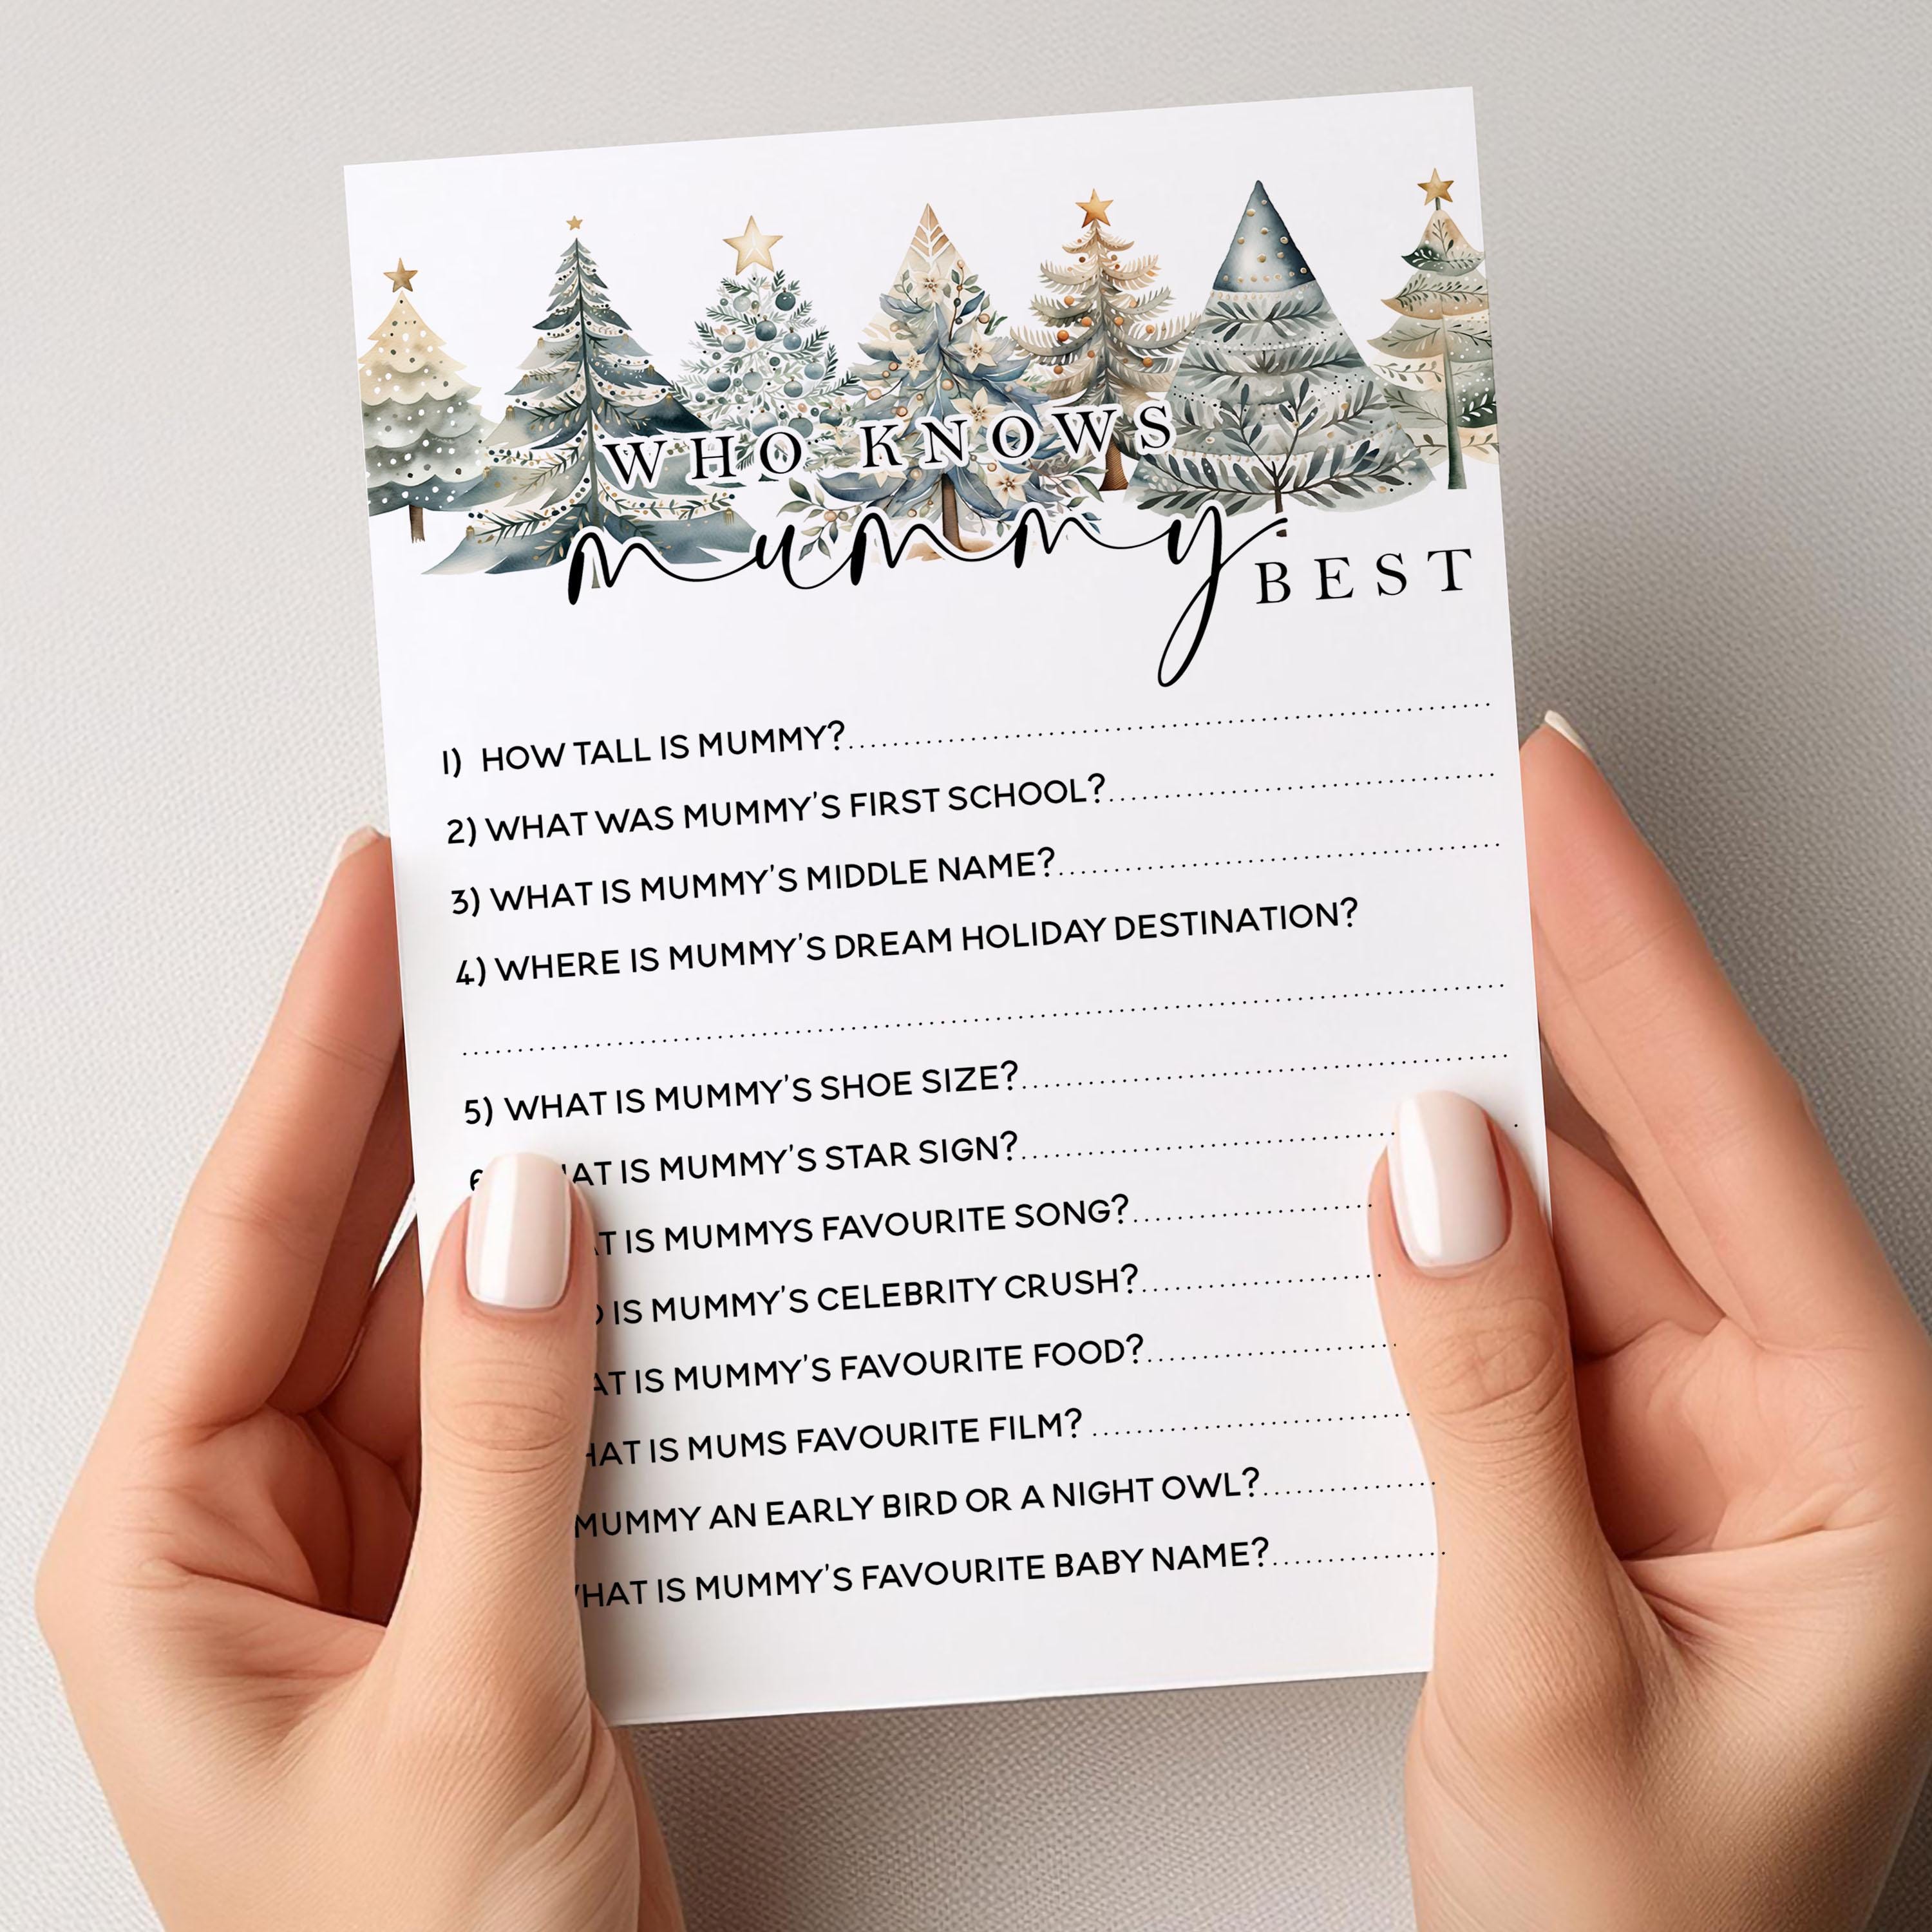 WHO KNOWS
mummy BEST
1) HOW TALL IS MUMMY?
2) WHAT WAS MUMMY'S FIRST SCHOOL?
3) WHAT IS MUMMY'S MIDDLE NAME?
4) WHERE IS MUMMY'S DREAM HOLIDAY DESTINATION?
5) WHAT IS MUMMY'S SHOE SIZE?
IS MUMMY'S STAR SIGN?
IS MUMMYS FAVOURITE SONG?
IS MUMMY'S CELEBRITY CRUSH?
IS MUMMY'S FAVOURITE FOOD?
IS MUMS FAVOURITE FILM?
MUMMY AN EARLY BIRD OR A NIGHT OWL?
IS MUMMY'S FAVOURITE BABY NAME?